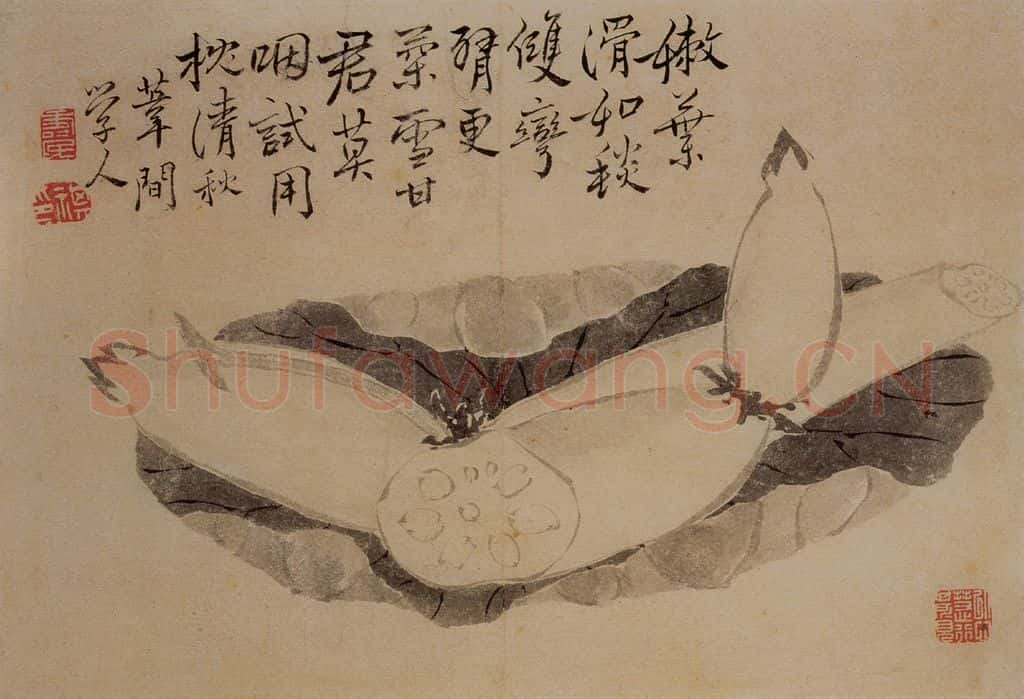 嫩葉
滑和
雙彎
臂更
雪甘
君莫
咽試用
枕清秋
葦間
学人
Shufawang.CN